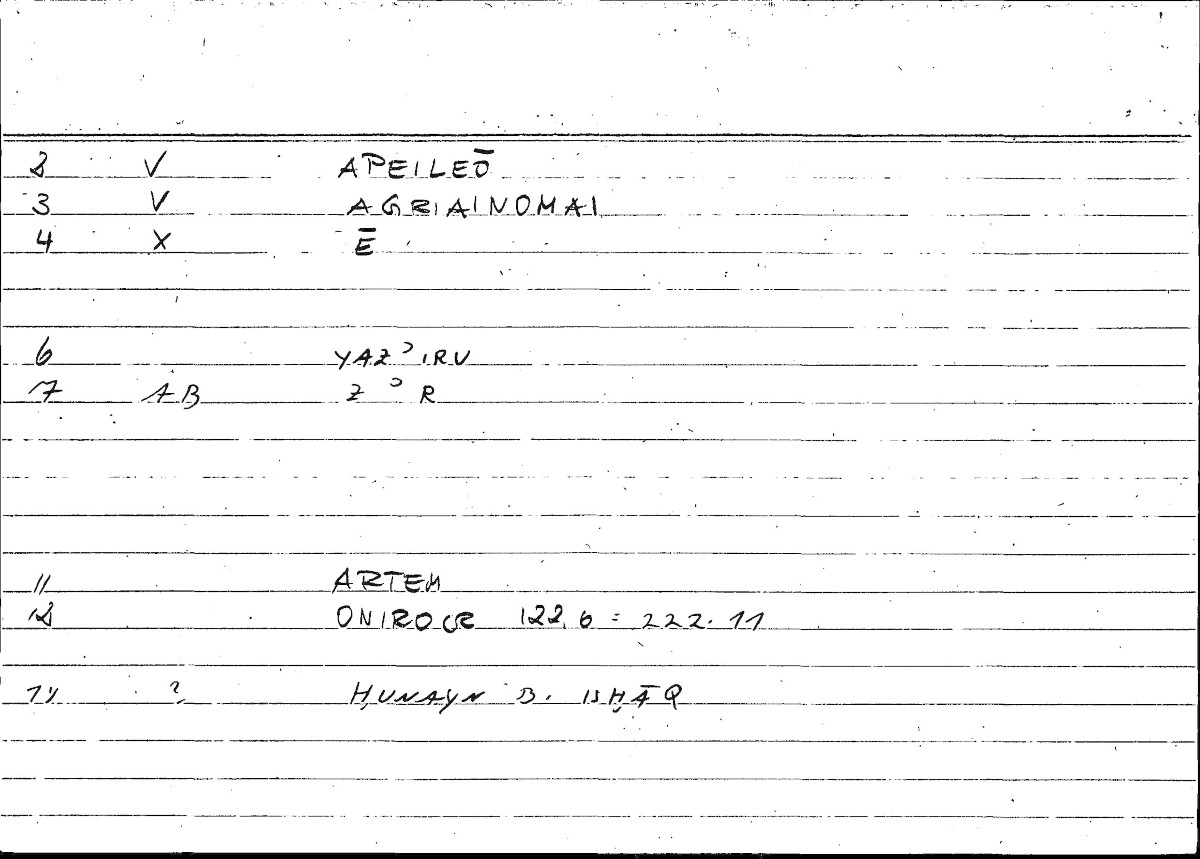 2 V APEILEŌ
3 V AGRIAINOMAI
4 X Ē
6 YAZʾIRU
7 AB Z ʾ R
11 ARTEM
12 ONIROCR 122,6 = 222.11
14 ? ḤUNAYN B. ISḤĀQ